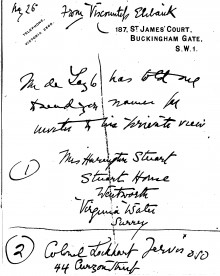 Aug 26
From Viscountess Elibank
TELEPHONE,
VICTORIA
187, ST JAMES' COURT,
BUCKINGHAM GATE,
S.W.1.
Mr de Laszlo has told me
to send you names for
invites to his private view
1
Mrs Harington Stuart
Stuart House
Wentworth
Virginia Water
Surrey
2 Colonel Lockhart Jarvis DSO
44 Curzon Street